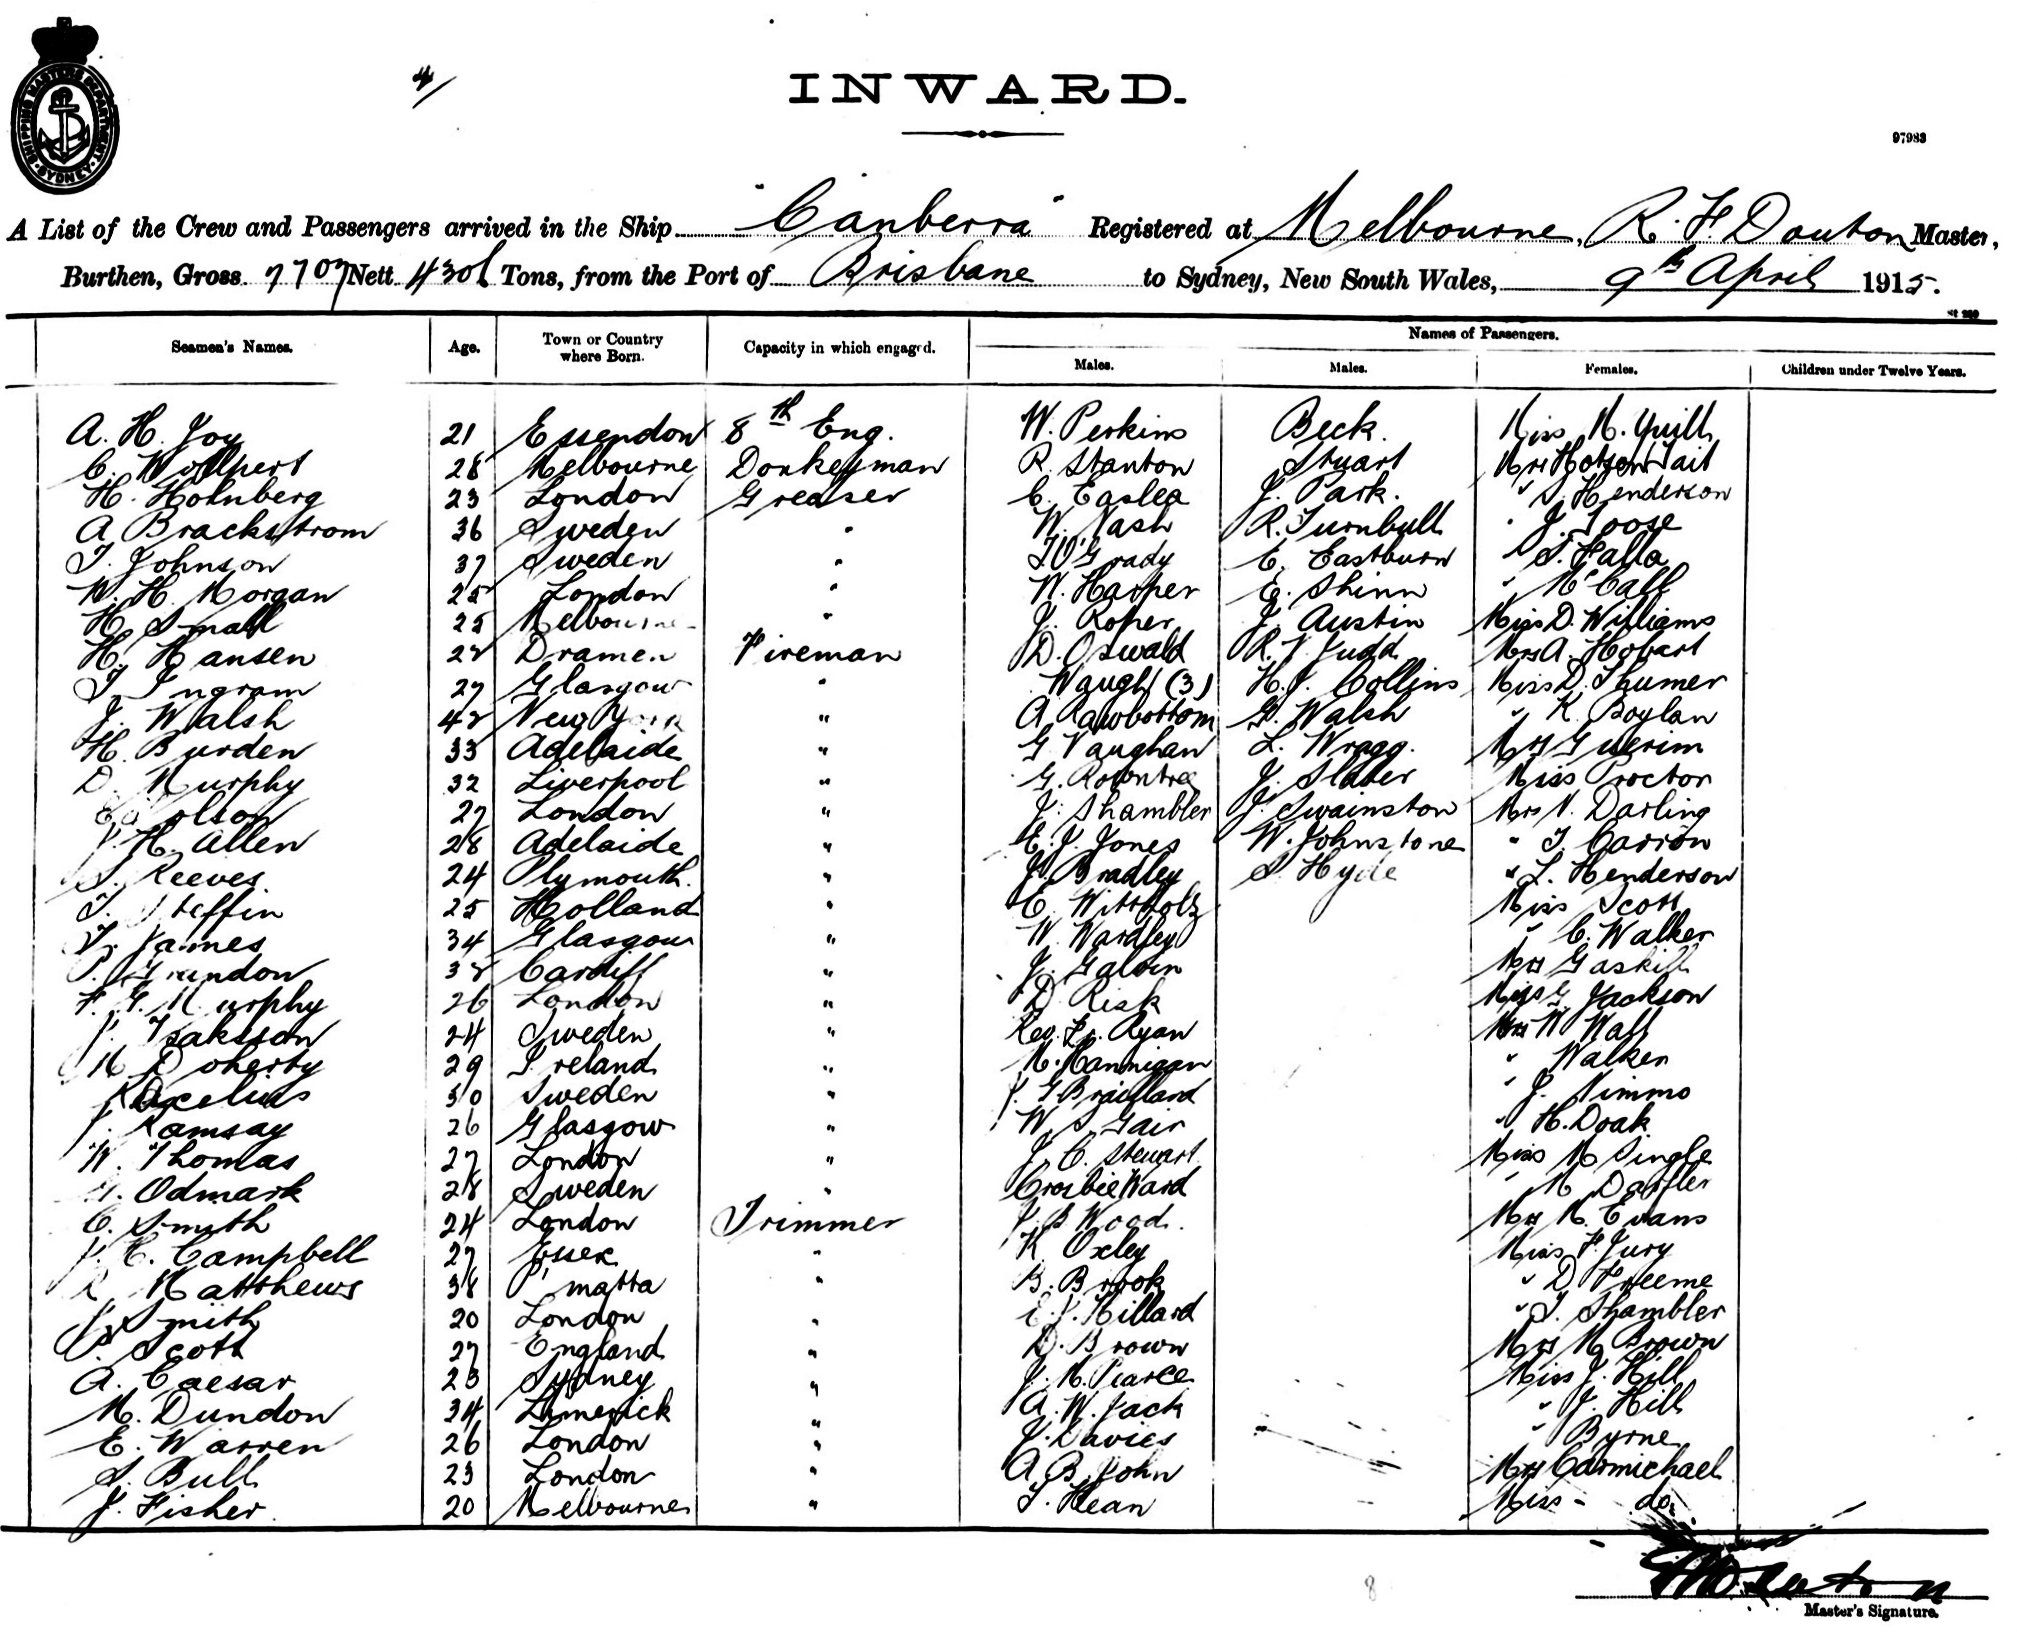 SHIPPING MASTERS DEPARTMENT
SYDNEY
4/
INWARD.
97983
A List of the Crew and Passengers arrived in the Ship "Canberra" Registered at Melbourne, R. F Douton Master,
Burthen, Gross 7707 Nett 4301 Tons, from the Port of Brisbane to Sydney, New South Wales, 9th April 1915.
Names of Passengers.
Seamen's Names. Age. Town or Country where Born. Capacity in which engaged. Males. Males. Females. Children under Twelve Years.
A. H. Joy 21 Essendon 8th Eng. W. Perkins Beck. Miss M. Quill
C. Wollpert 28 Melbourne Donkeyman R. Stanton Stuart Mrs Tait
H. Holmberg 23 London Greaser C. Easlea J. Park. " S. Henderson
A Brackstrom 36 Sweden " W. Nash R. Turnbull " J. Toose
T. Johnson 37 Sweden " T. O'Grady E. Eastburn " S. Halla
W. H. Morgan 25 London " W. Harper E. Shinn " McCall
H. Small 25 Melbourne " J. Roper J. Austin Miss D. Williams
H. Hansen 28 Dramen Fireman D. Oswald R. J Judd Mrs A. Hobart
T. Ingram 27 Glasgow " Waugh (3) H. J. Collins Miss D. Thumer
J. Walsh 42 New York " A Rawbottom G. Walsh " K. Boylan
H. Burden 33 Adelaide " G Vaughan L. Wragg. Mrs Guerim
D. Murphy 32 Liverpool " G. Rowntree J. Slater Miss Proctor
olson 27 London " J. Shambler J. Swainston Mrs N. Darling
H. Allen 28 Adelaide " E. J. Jones W. Johnstone " T. Carron
S. Reeves 24 Plymouth " J. Bradley S Hyde " L. Henderson
T. Steffin 25 Holland " C. Wittholz Miss Scott
T. James 34 Glasgow " W. Wardley " C. Walker
P. Grundon 38 Cardiff " J. Galvin Mrs Gaskill
F. G. Murphy 26 London " D. Risk Miss G Jackson
J. Isaksson 24 Sweden " Rev. Fr. Ryan Mrs W Wall
M Doherty 29 Ireland " M. Hannigan " Walker
K Axelius 30 Sweden " J. G Brailland " J. Nimmo
J. Ramsay 26 Glasgow " W. S. Gair " H. Doak
W. Thomas 27 London " J. C. Stewart Miss M Single
Odmark 28 Sweden " Crosbie Ward " M Daffler
C. Smith 24 London Trimmer J. B Wood. Mrs M. Evans
J. C. Campbell 27 Essex " K Oxley Miss F. Jury
R Matthews 38 P'matta " B. Brook " D Freeme
J. Smith 20 London " E. J. Hillard " T. Shambler
P. Scott 27 England " D. Brown Mrs M Brown
A. Caesar 23 Sydney " J. M. Pearce Miss J. Hill
M. Dundon 34 Limerick " A. W. Jack " J. Hill
E. Warren 26 London " J. Davies " Byrne
S. Bull 23 London " A. B. John Mrs Carmichael
J. Fisher 20 Melbourne " T. Hean Miss - do.
8
Master's Signature.